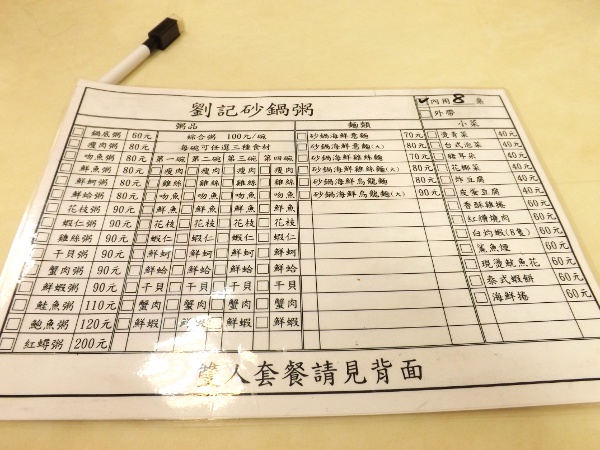 劉記砂鍋粥
內用 8 桌
外帶
粥品
鍋底粥 60元
瘦肉粥 80元
吻魚粥 80元
鮮魚粥 80元
鮮蚵粥 80元
鮮蛤粥 80元
花枝粥 90元
蝦仁粥 90元
雞絲粥 90元
干貝粥 90元
蟹肉粥 90元
鮮蝦粥 90元
鮭魚粥 110元
鮑魚粥 120元
紅蟳粥 200元
綜合粥 100元/碗
每碗可任選三種食材
第一碗 第二碗 第三碗 第四碗
瘦肉 瘦肉 瘦肉 瘦肉
雞絲 雞絲 雞絲 雞絲
吻魚 吻魚 吻魚 吻魚
鮮魚 鮮魚 鮮魚 鮮魚
花枝 花枝 花枝 花枝
蝦仁 蝦仁 蝦仁 蝦仁
鮮蚵 鮮蚵 鮮蚵 鮮蚵
鮮蛤 鮮蛤 鮮蛤 鮮蛤
干貝 干貝 干貝 干貝
蟹肉 蟹肉 蟹肉 蟹肉
鮮蝦 鮮蝦 鮮蝦 鮮蝦
麵類
砂鍋海鮮意麵 70元
砂鍋海鮮意麵(大) 80元
砂鍋海鮮雞絲麵 70元
砂鍋海鮮雞絲麵(大) 80元
砂鍋海鮮烏龍麵 80元
砂鍋海鮮烏龍麵(大) 90元
小菜
燙青菜 40元
台式泡菜 40元
豬耳朵 40元
花椰菜 40元
炸豆腐 40元
皮蛋豆腐 40元
香酥雞捲 60元
紅糟燒肉 60元
白灼蝦(8隻) 60元
鯊魚煙 60元
現燙魷魚花 60元
泰式蝦餅 60元
海鮮捲 60元
雙人套餐請見背面